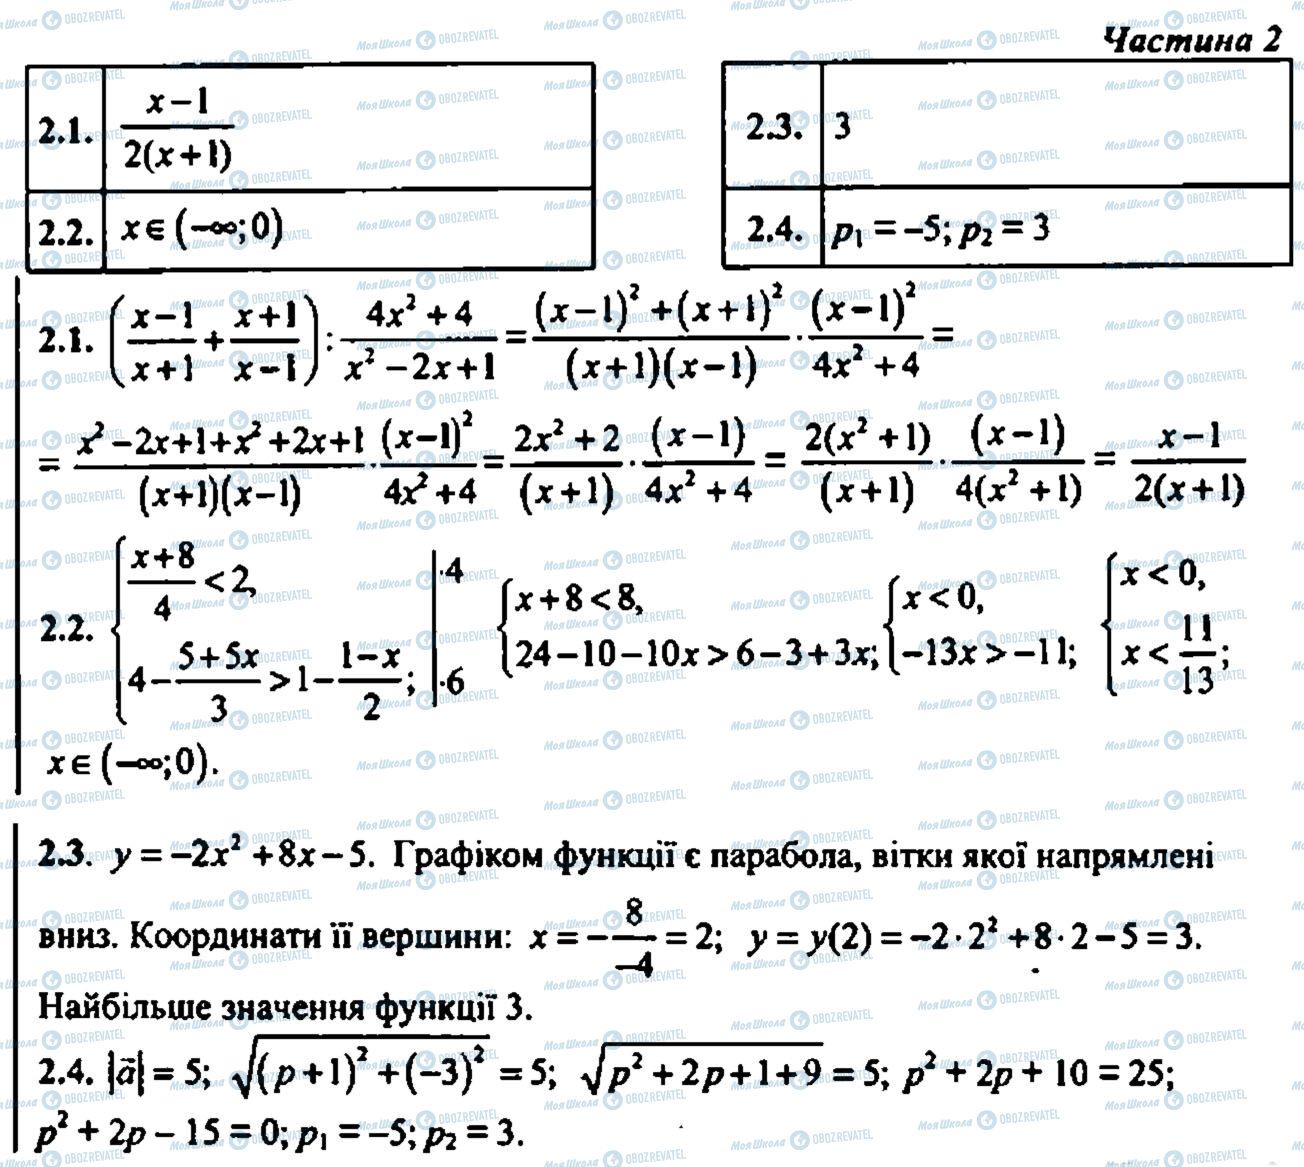 Частина 2
2.1. (x−1)/(2(x+1))
2.2. x∈(−∞;0)
2.3. 3
2.4. p₁ = −5; p₂ = 3
2.1. ((x−1)/(x+1) + (x+1)/(x−1)) : (4x²+4)/(x²−2x+1) = ((x−1)²+(x+1)²)/((x+1)(x−1)) · (x−1)²/(4x²+4) =
= (x²−2x+1+x²+2x+1)/((x+1)(x−1)) · (x−1)²/(4x²+4) = (2x²+2)/(x+1) · (x−1)/(4x²+4) = 2(x²+1)/(x+1) · (x−1)/(4(x²+1)) = (x−1)/(2(x+1))
2.2. { (x+8)/4 < 2, | ·4 { x+8<8, { x<0, { x<0,
4 − (5+5x)/3 > 1 − (1−x)/2; | ·6 24−10−10x > 6−3+3x; −13x > −11; x < 11/13;
x∈(−∞;0).
2.3. y = −2x² + 8x − 5. Графіком функції є парабола, вітки якої напрямлені
вниз. Координати її вершини: x = −8/−4 = 2; y = y(2) = −2·2² + 8·2 − 5 = 3.
Найбільше значення функції 3.
2.4. |a̅| = 5; √((p+1)² + (−3)²) = 5; √(p² + 2p + 1 + 9) = 5; p² + 2p + 10 = 25;
p² + 2p − 15 = 0; p₁ = −5; p₂ = 3.
МояШкола OBOZREVATEL